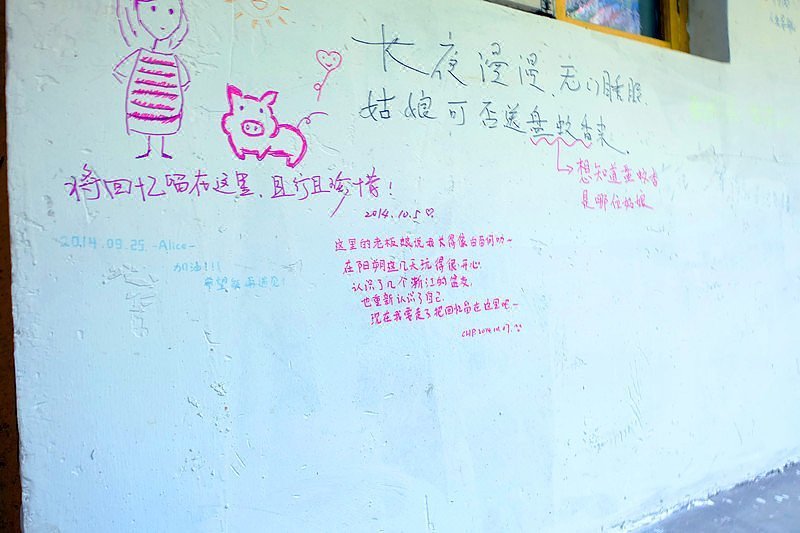 长夜漫漫、无心睡眠、
姑娘可否送盘蚊香来、
想知道盘蚊香
是哪位姑娘
将回忆留在这里、且行且珍惜!
2014.10.5
2014.09.25 -Alice-
加油!!!
希望会再遇见!
这里的老板娘说我长得像白百何呐~
在阳朔这几天玩得很开心
认识了几个浙江的盆友,
也重新认识了自己
现在我要走了把回忆留在这里吧~
2014.10.07.